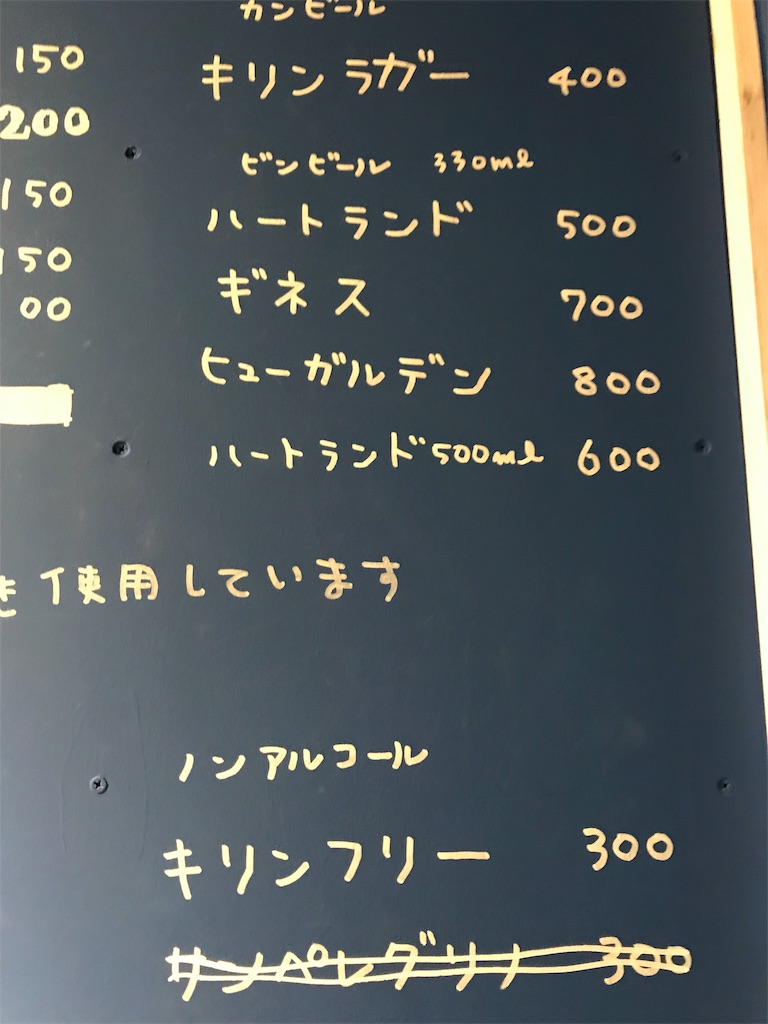 カンビール
150 キリンラガー 400
200
ビンビール 330ml
150 ハートランド 500
150 ギネス 700
00
ヒューガルデン 800
ハートランド500ml 600
を使用しています
ノンアルコール
キリンフリー 300
サンペレグリノ 300